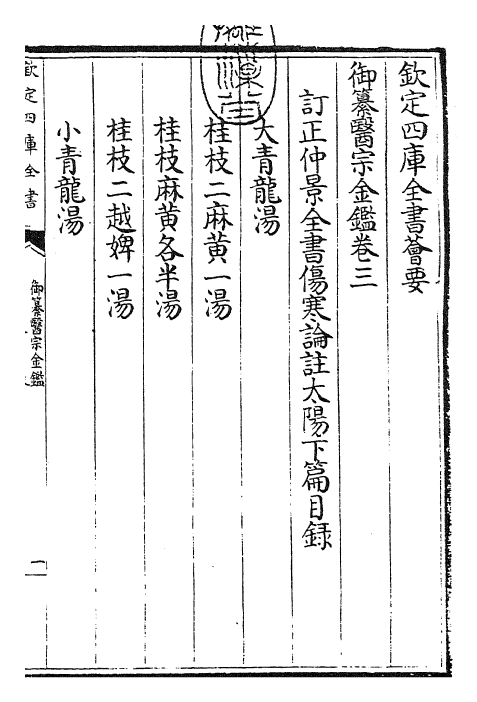 欽定四庫全書薈要
御纂醫宗金鑑卷三
訂正仲景全書傷寒論註太陽下篇目録
大青龍湯
桂枝二麻黃一湯
桂枝麻黃各半湯
桂枝二越婢一湯
小青龍湯
欽定四庫全書
御纂醫宗金鑑
一